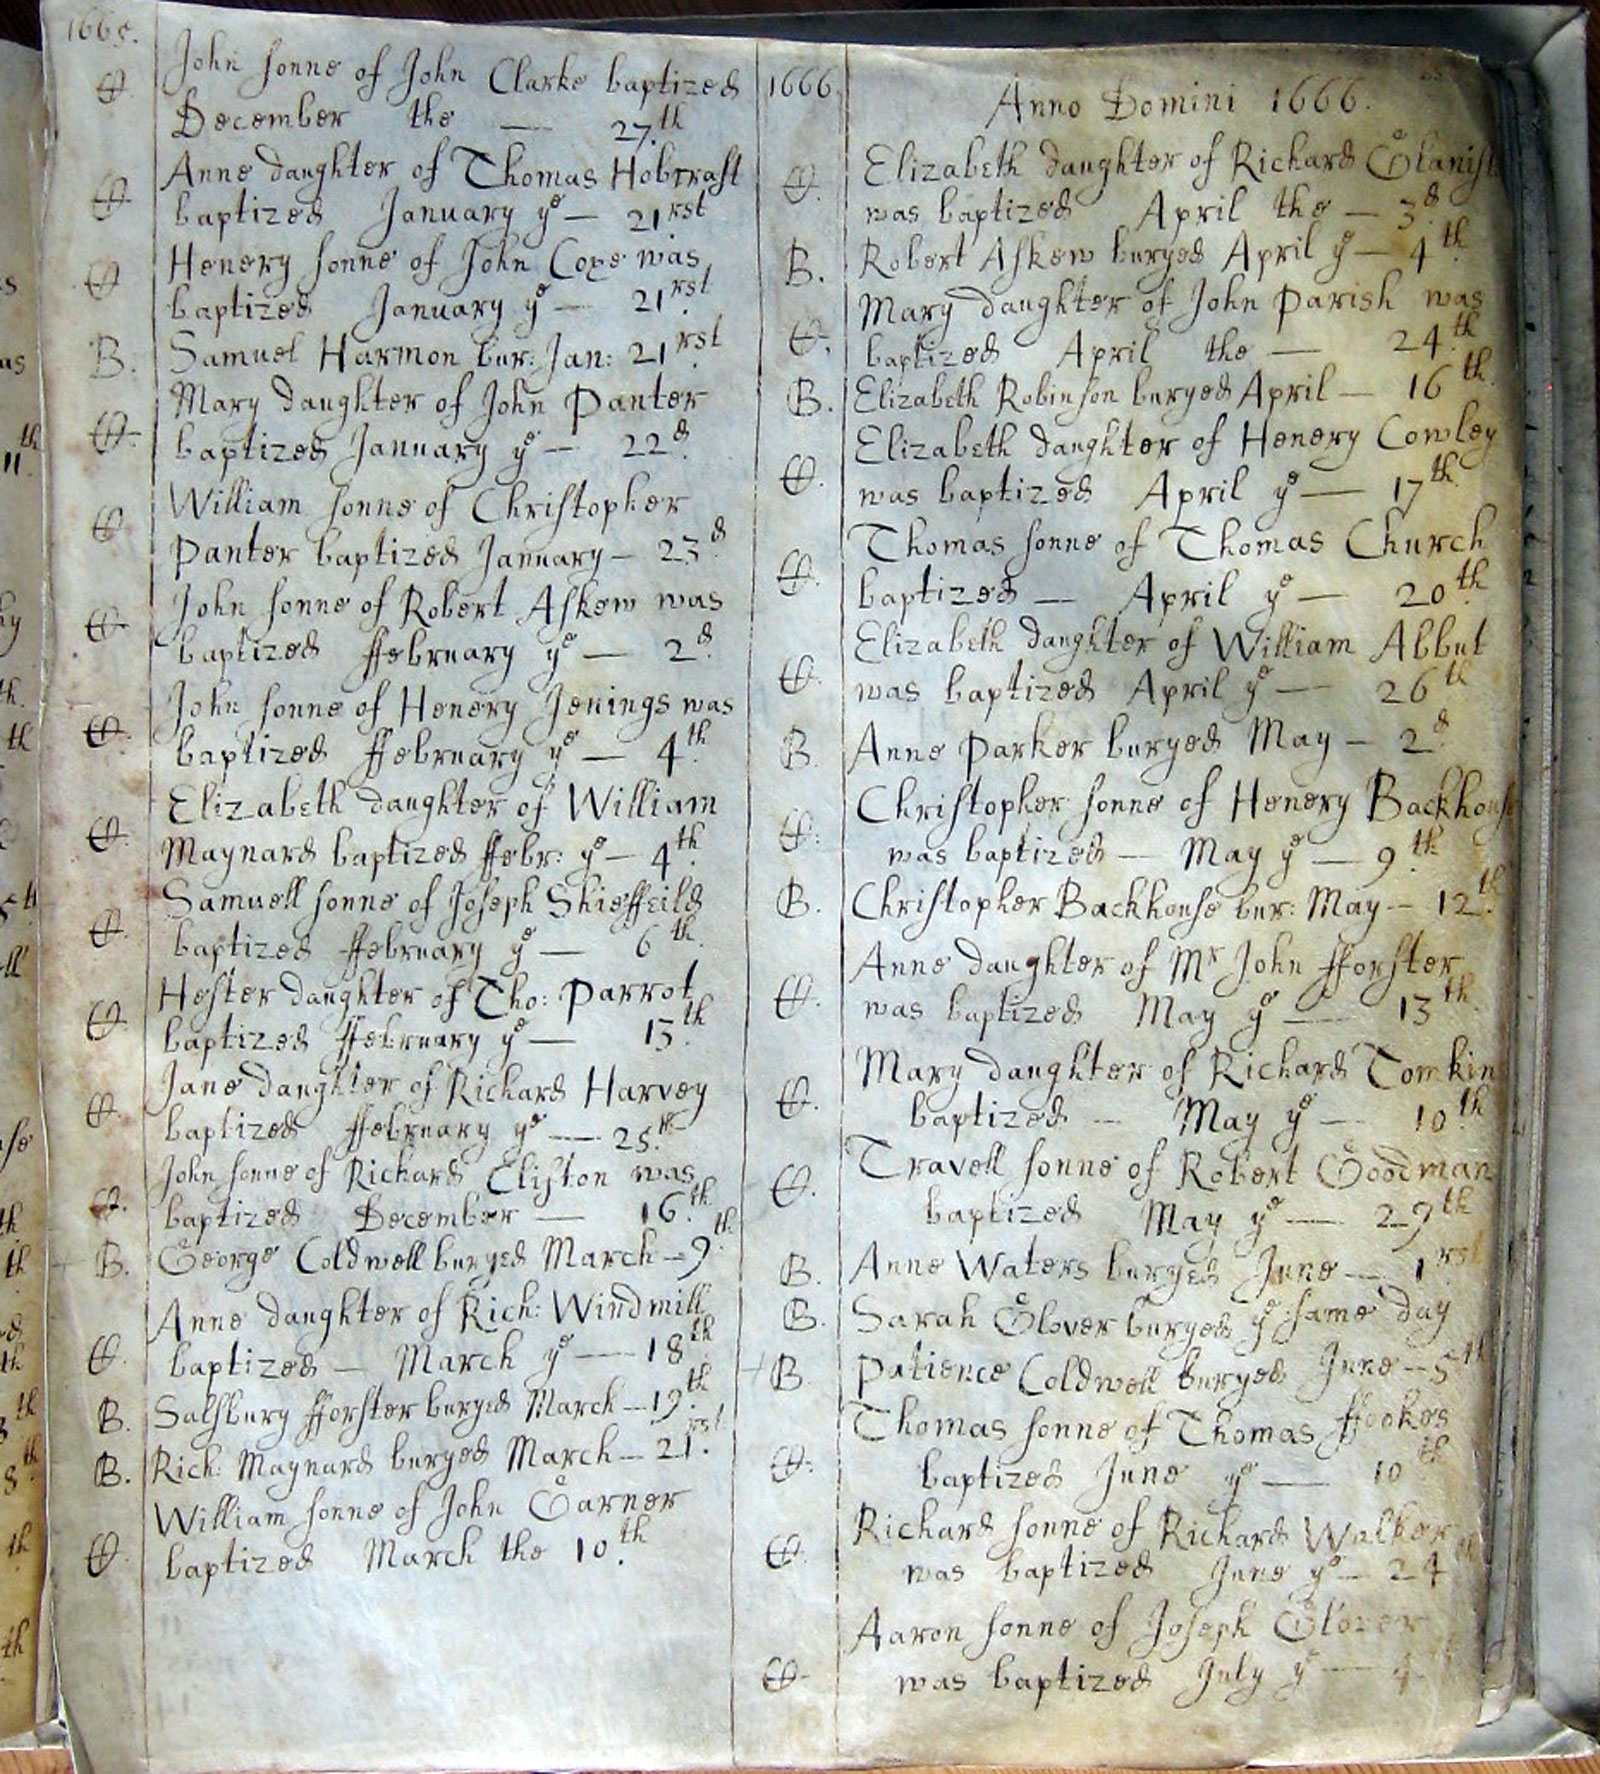 1665.
John sonne of John Clarke baptized
December the — 27.th
Anne daughter of Thomas Hobcraft
baptized January ye — 21.rst
Henery sonne of John Coxe was
baptized January ye — 21.rst
B. Samuel Harmon bur: Jan: 21.rst
Mary daughter of John Panter
baptized January ye — 22.d
William sonne of Christopher
Panter baptized January — 23.d
John sonne of Robert Askew was
baptized ffebruary ye — 2.d
John sonne of Henery Jenings was
baptized ffebruary ye — 4.th
Elizabeth daughter of William
Maynard baptized ffebr: ye — 4.th
Samuell sonne of Joseph Shieffeild
baptized ffebruary ye — 6.th
Hester daughter of Tho: Parrot
baptized ffebruary ye — 15.th
Jane daughter of Richard Harvey
baptized ffebruary ye — 25.th
John sonne of Richard Clifton was
baptized December — 16.th
B. George Coldwell buryed March — 9.th
Anne daughter of Rich: Windmill
baptized — March ye — 18.th
B. Salsbury fforster buryed March — 19.th
B. Rich: Maynard buryed March — 21.rst
William sonne of John Garner
baptized March the 10.th
1666.
Anno Domini 1666.
Elizabeth daughter of Richard
was baptized April the — 3.d
B. Robert Askew buryed April ye — 4.th
Mary daughter of John Parish was
baptized April the — 24.th
B. Elizabeth Robinson buryed April — 16.th
Elizabeth daughter of Henery Cowley
was baptized April ye — 17.th
Thomas sonne of Thomas Church
baptized — April ye — 20.th
Elizabeth daughter of William Abbut
was baptized April ye — 26.th
B. Anne Parker buryed May — 2.d
Christopher sonne of Henery Backhouse
was baptized — May ye — 9.th
B. Christopher Backhouse bur: May — 12.th
Anne daughter of Mr John fforster
was baptized May ye — 13.th
Mary daughter of Richard Tomkins
baptized — May ye — 10.th
Travell sonne of Robert Goodman
baptized May ye — 27.th
B. Anne Waters buryed June — 1.rst
B. Sarah Glover buryed ye same day
B. Patience Coldwell buryed June — 5.th
Thomas sonne of Thomas ffookes
baptized June ye — 10.th
Richard sonne of Richard Walker
was baptized June ye — 24.th
Aaron sonne of Joseph Glover
was baptized July ye — 4